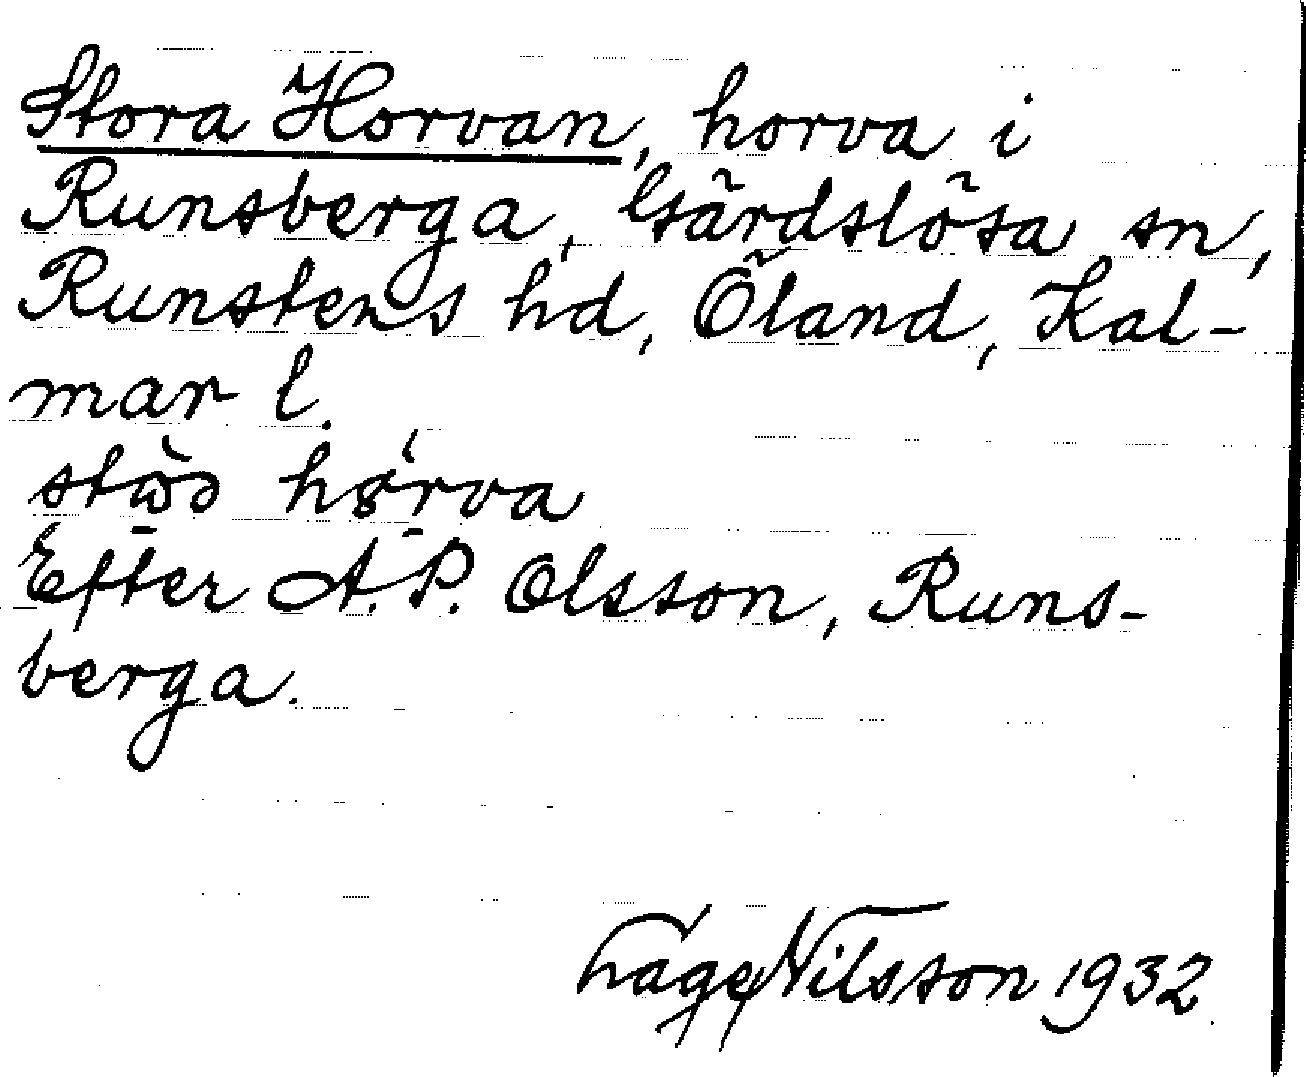 Stora Horvan, horva i
Runsberga, Gärdslösa sn,
Runstens hd, Öland, Kal-
mar l.
Efter A.P. Olsson, Runs-
berga.
Tage Nilsson 1932